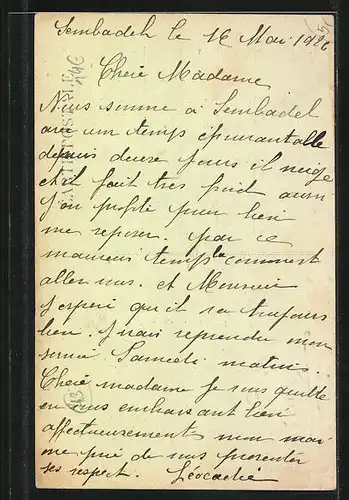 Sembadel le 16 Mai 1926
Cheré Madame
Nous somme a Sembadel
avec un temps épouvantable
depuis deux jours il neige
et il fait tres froid aussi
J'en profite pour bien
me reposer. par ce
mauvais temps la comment
allez vous. et Monsieur
J'espere qu il va toujours
bien. J'irais reprendre mon
service Samedi matin.
Cheré madame Je vous quitte
en vous embrassant bien
affectueusements mon mari
me prie de vous presenter
ses respect. Léocadie
CARTE POSTALE
146